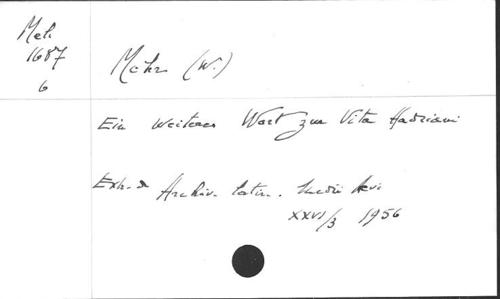 Mel.
1687
6
Mohr (W.)
Ein weiteres Wort zur Vita Hadriani
Extr. d Archiv. latin. medii Aevi
XXVI/3 1956